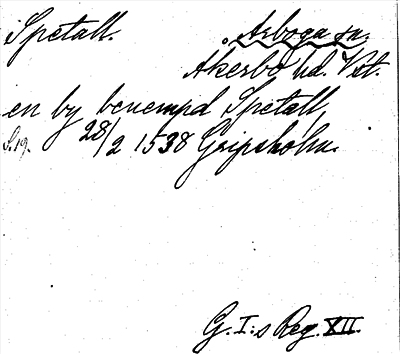 Spetall. Arboga sn.
Åkerbo hd. Vstm.
en by benempd Spetall,
S. 19. 28/2 1538 Gripsholm.
G. I:s Reg. XII.